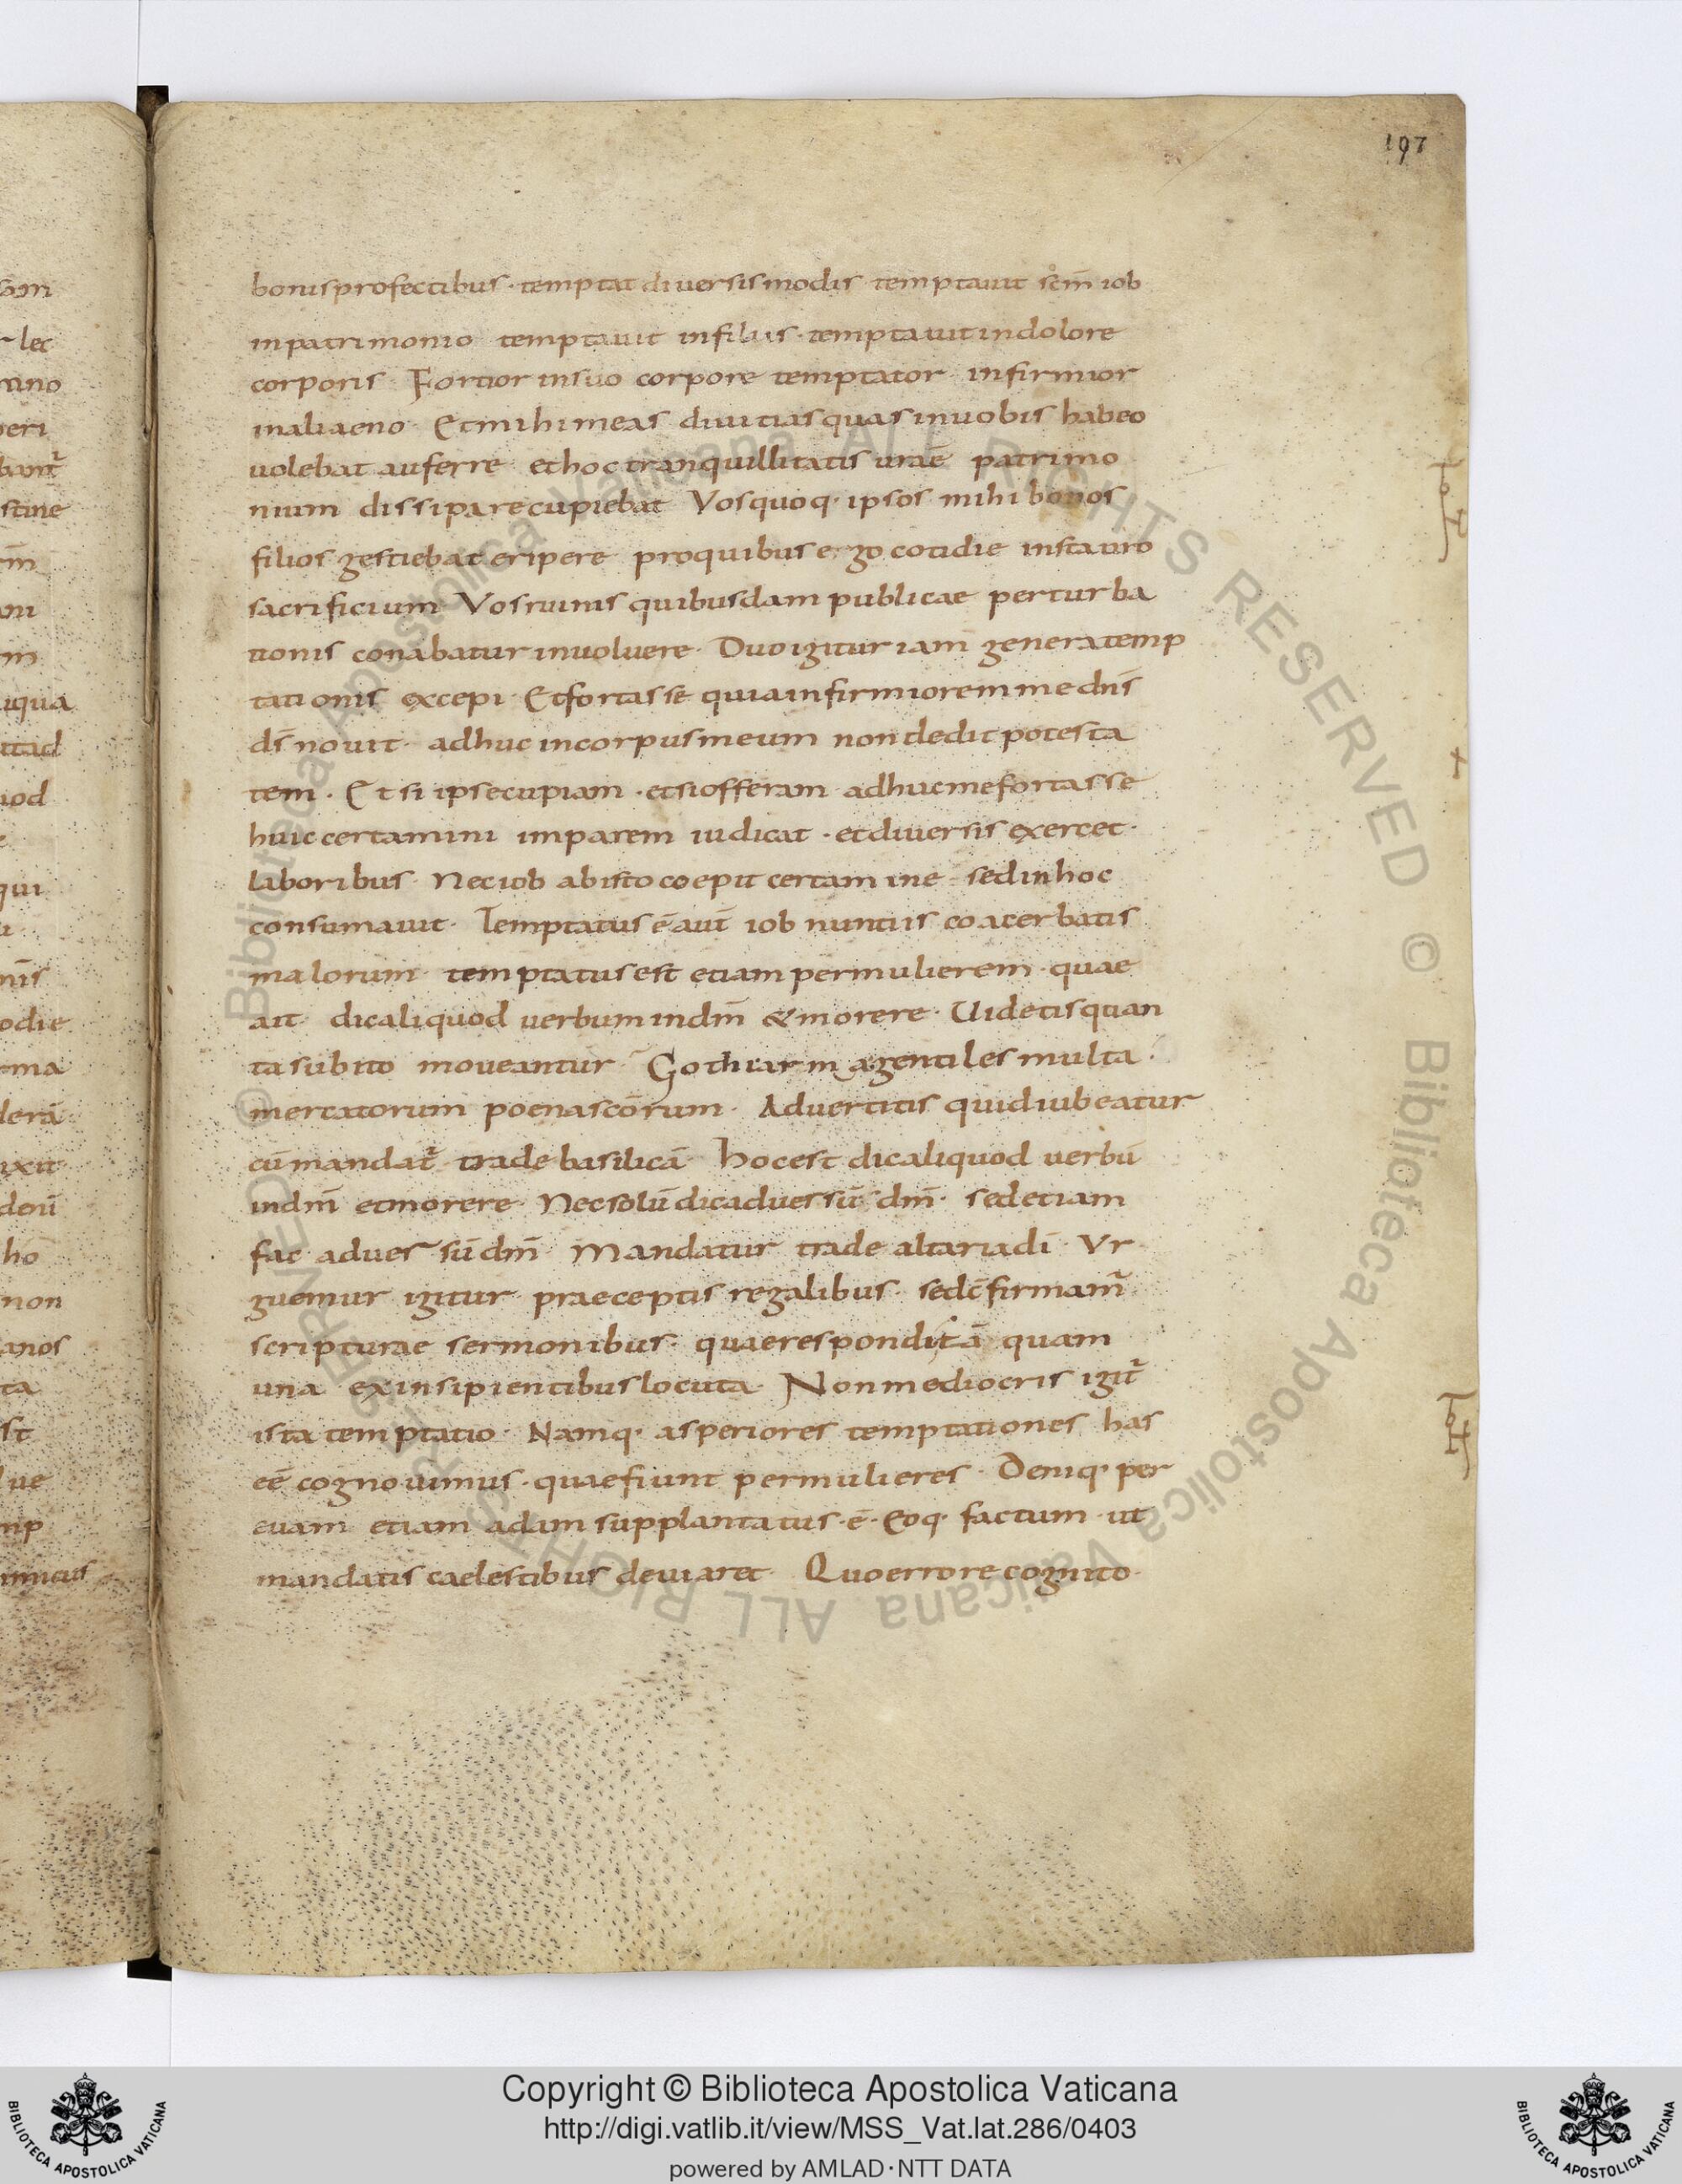 197
bonis profectibus · temptat diuersis modis temptauit scm̄ iob
inpatrimonio temptauit infiliis · temptauit indolore
corporis · Fortior insuo corpore temptator · infirmior
inaliaeno · Et mihi meas diuitias quas inuobis habeo
uolebat auferre · et hoc tranquillitatis urae patrimo
nium dissipare cupiebat Vos quoq· ipsos mihi bonos
filios gestiebat eripere proquibus ergo cotidie instauro
sacrificium Vos ruinis quibusdam publicae perturba
tionis conabatur inuoluere · Duo igitur iam genera temp
tationis excepi · Et fortasse quia infirmiorem me dns̄
ds̄ nouit · adhuc incorpus meum non dedit potesta
tem · Et si ipse cupiam · et si offeram adhuc me fortasse
huic certamini imparem iudicat · et diuersis exercet ·
laboribus · Nec iob abisto coepit certamine sed in hoc
consumauit · Temptatus ē aut̄ iob nuntiis coacerbatis
malorum · temptatus est etiam per mulierem · quae
ait dic aliquod uerbum in dm̄ & morere · Uidetis quan
ta subito moueantur · Gothi arma gentiles multa ·
mercatorum poena sc̄orum · Aduertitis quid iubeatur
cū mandat᷒ trade basilicā hoc est dic aliquod uerbū
in dm̄ et morere · Nec solū dic aduersū dm̄ · sed etiam
fac aduersū dm̄ Mandatur trade altaria di · Vr
guemur igitur praeceptis regalibus · sed c̄firmam᷒
scripturae sermonibus · quae respondit tā quam
una ex insipientibus locuta · Non mediocris igit᷒
ista temptatio · Namq· asperiores temptationes has
eē cognouimus · quae fiunt per mulieres · Deniq· per
euam etiam adam supplantatus · ē · Eoq· factum · ut
mandatis caelestibus deuiaret · Quo errore cognito ·
Copyright © Biblioteca Apostolica Vaticana
http://digi.vatlib.it/view/MSS_Vat.lat.286/0403
powered by AMLAD·NTT DATA
BIBLIOTECA APOSTOLICA VATICANA
BIBLIOTECA APOSTOLICA VATICANA
© Biblioteca Apostolica Vaticana ALL RIGHTS RESERVED © Biblioteca Apostolica Vaticana ALL RIGHTS RESERVED